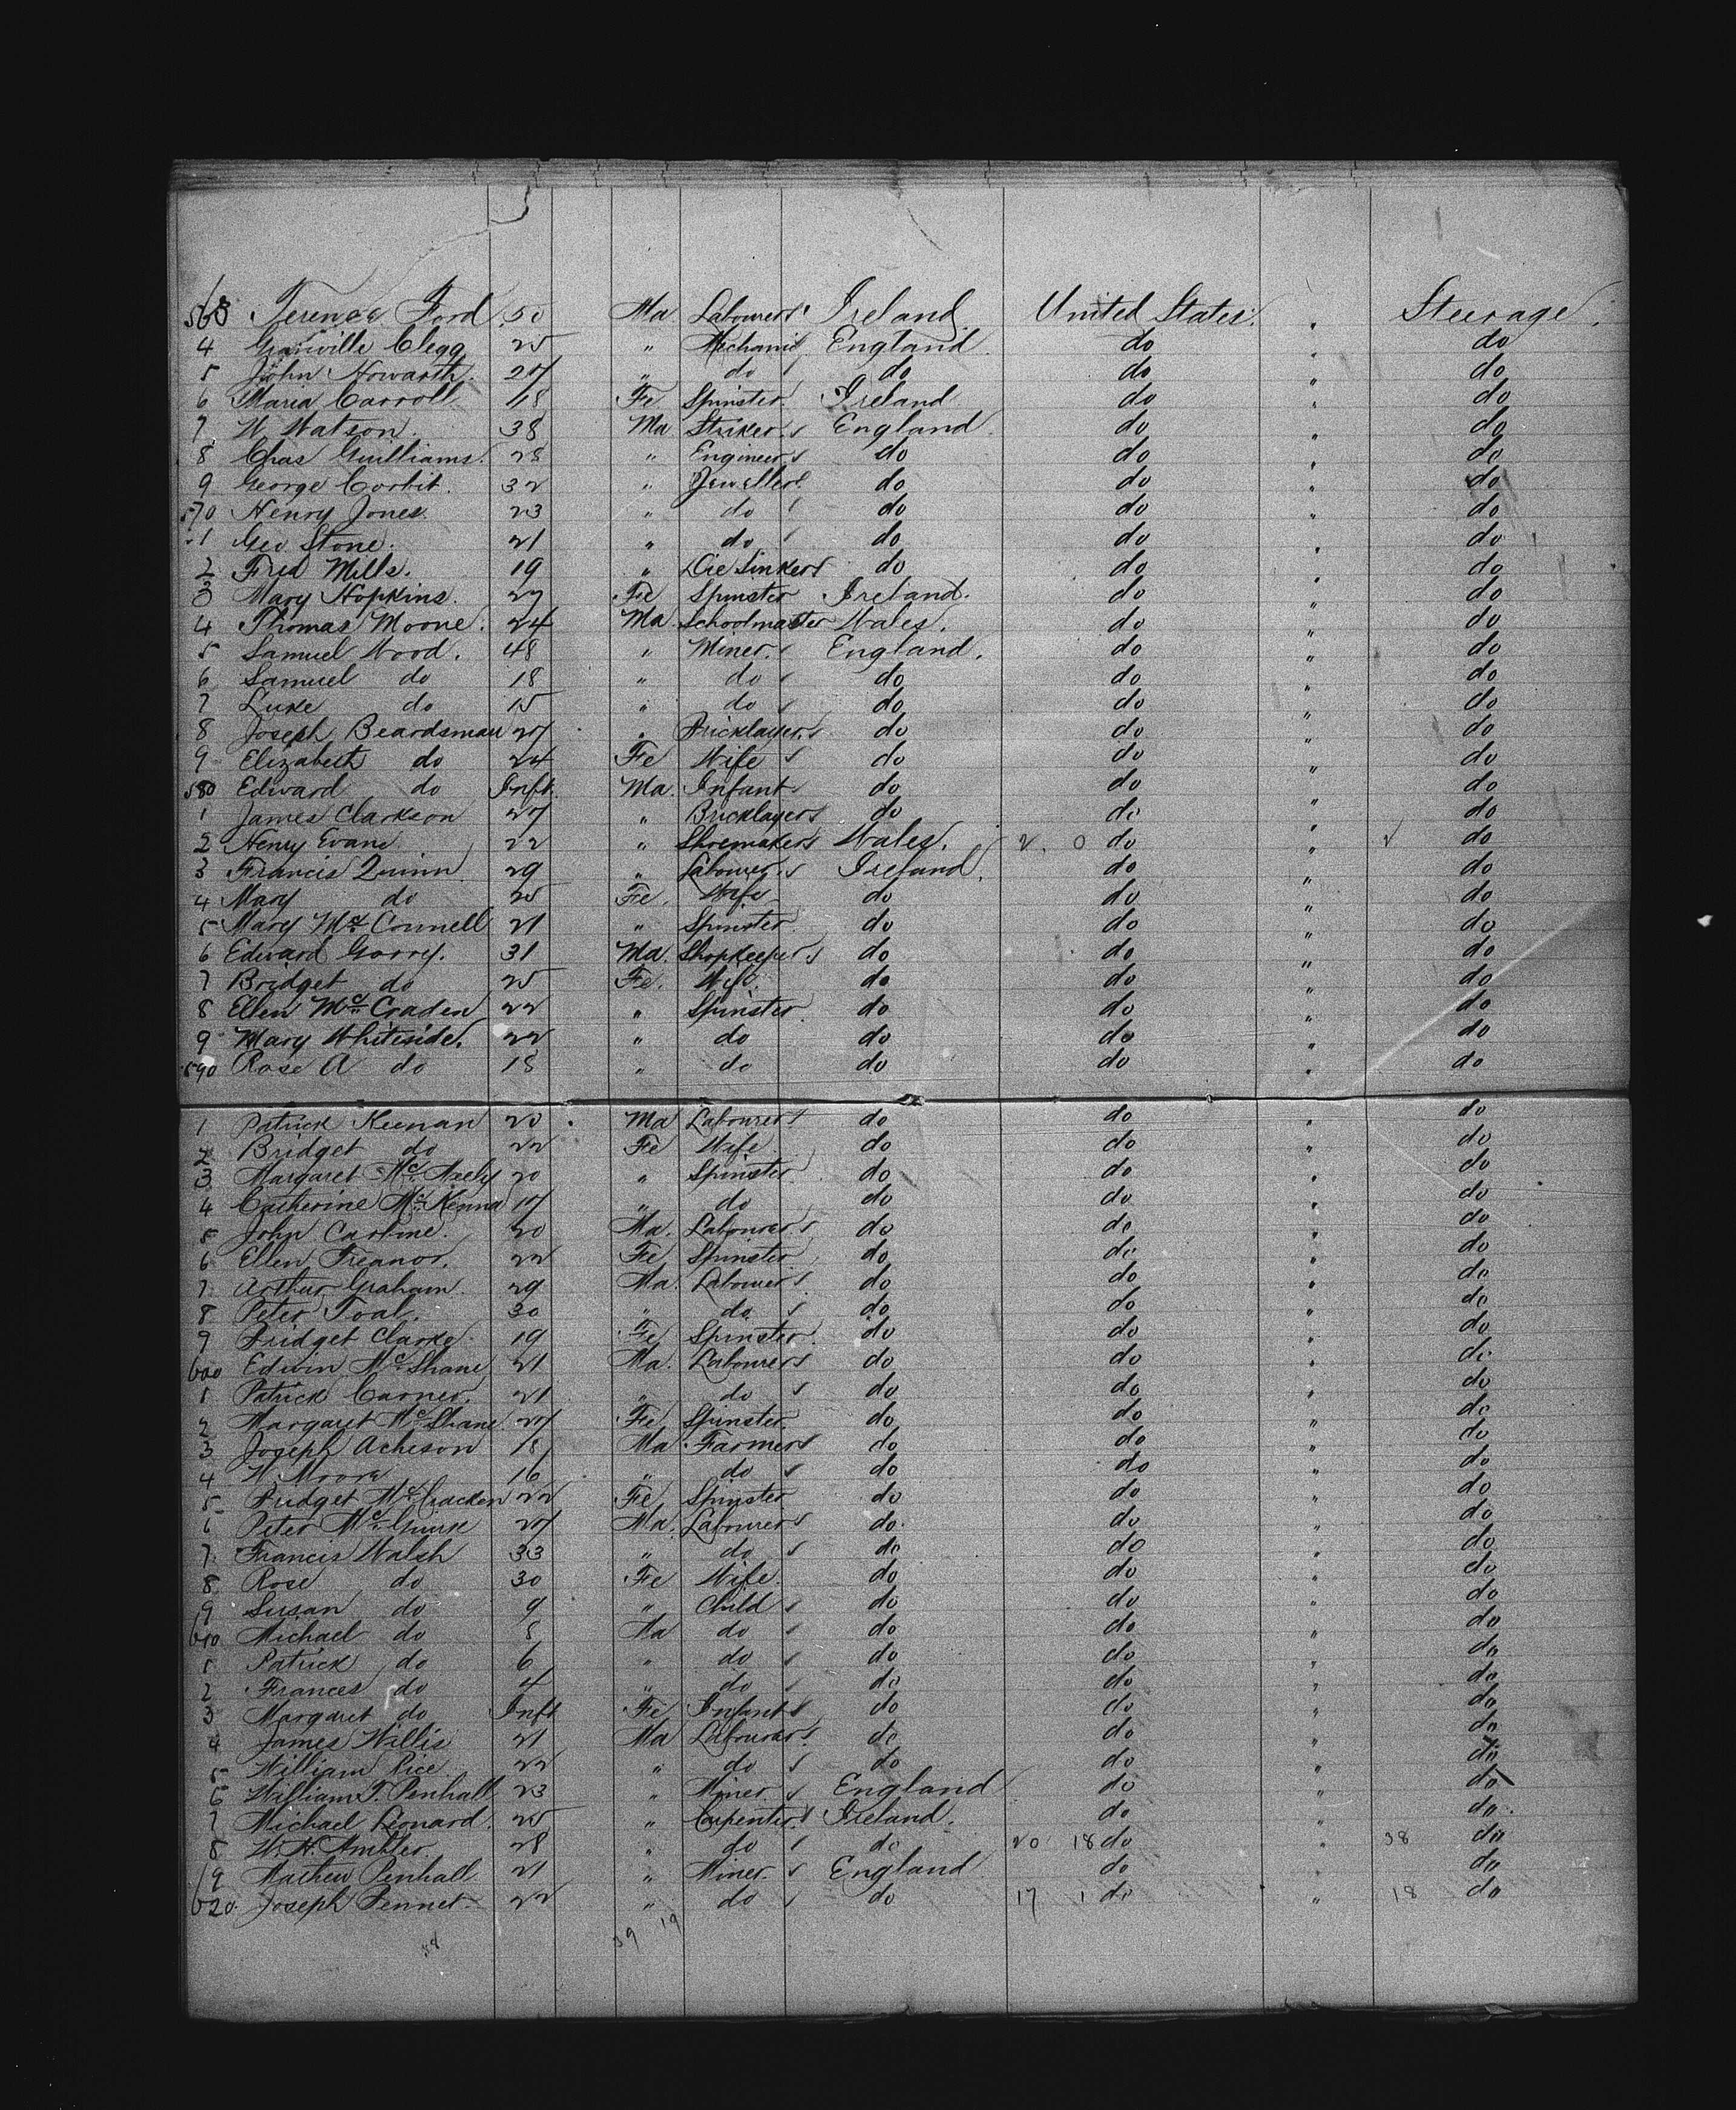 563 Terence Ford 50 Ma Labourer Ireland United States " Steerage
4 Granville Clegg 25 " Mechanic England do " do
5 John Howarth 27 " do do do " do
6 Maria Carroll 18 Fe Spinster Ireland do " do
7 W Watson 38 Ma Striker England do " do
8 Chas Guilliams 28 " Engineer do do " do
9 George Corbit 32 " Jeweller do do " do
570 Henry Jones 23 " do do do " do
1 Geo Stone 21 " do do do " do
2 Fred Mills 19 " Die Sinker do do " do
3 Mary Hopkins 27 Fe Spinster Ireland do " do
4 Thomas Moone 24 Ma Schoolmaster Wales do " do
5 Samuel Wood 48 " Miner England do " do
6 Samuel do 18 " do do do " do
7 Luke do 15 " do do do " do
8 Joseph Beardsman 27 " Bricklayer do do " do
9 Elizabeth do 24 Fe Wife do do " do
580 Edward do Inft Ma Infant do do " do
1 James Clarkson 27 " Bricklayer do do " do
2 Henry Evans 22 " Shoemaker Wales 2 0 do " do
3 Francis Quinn 29 " Labourer Ireland do " do
4 Mary do 25 Fe Wife do do " do
5 Mary McConnell 21 " Spinster do do " do
6 Edward Gorry 31 Ma Shopkeeper do do " do
7 Bridget do 25 Fe Wife do do " do
8 Ellen McCraden 22 " Spinster do do " do
9 Mary Whiteside 22 " do do do " do
590 Rose A do 18 " do do do " do
1 Patrick Keenan 20 Ma Labourer do do " do
2 Bridget do 22 Fe Wife do do " do
3 Margaret 20 " Spinster do do " do
4 Catherine McKenna 17 " do do do " do
5 John 20 Ma Labourer do do " do
6 Ellen Treanor 22 Fe Spinster do do " do
7 Arthur Graham 29 Ma Labourer do do " do
8 Peter Toal 30 " do do do " do
9 Bridget Clarke 19 Fe Spinster do do " do
600 Edwin McShane 21 Ma Labourer do do " do
1 Patrick Carner 21 " do do do " do
2 Margaret McShane 27 Fe Spinster do do " do
3 Joseph Acheson 18 Ma Farmer do do " do
4 W Moore 16 " do do do " do
5 Bridget McCracken 22 Fe Spinster do do " do
6 Peter McGuirk 27 Ma Labourer do do " do
7 Francis Walsh 33 " do do do " do
8 Rose do 30 Fe Wife do do " do
9 Susan do 9 " Child do do " do
610 Michael do 8 Ma do do do " do
1 Patrick do 6 " do do do " do
2 Frances do 4 " do do do " do
3 Margaret do Inft Fe Infant do do " do
4 James Willis 21 Ma Labourer do do " do
5 William Rice 22 " do do do " do
6 William T. Penhall 23 " Miner England do " do
7 Michael Leonard 25 " Carpenter Ireland do " do
8 W. H. Ambler 28 " do do 20 18 do " 38 do
19 Mathew Penhall 21 " Miner England do " do
620 Joseph Pennet 22 " do do 17 1 do " 18 do
38 39 19